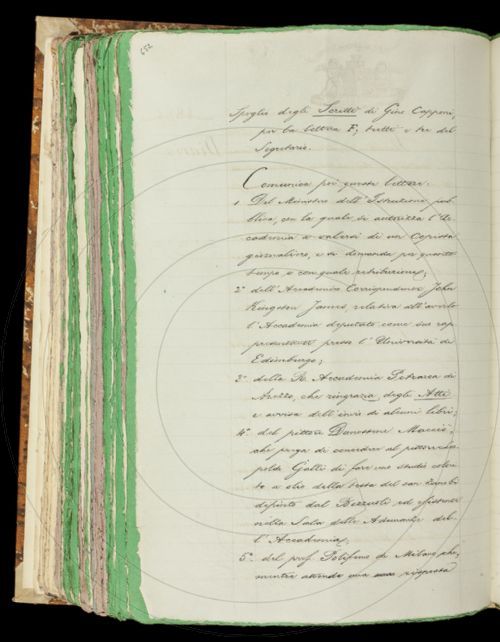 652
Spoglio degli Scritti di Gino Capponi,
per la lettera F, tutti e tre del
Segretario.
Comunica poi queste lettere:
1. Del Ministro dell'Istruzione pub-
blica, con la quale si autorizza l'Ac-
cademia a valersi di un Copista
giornaliero, e si domanda per quanto
tempo e con quale retribuzione;
2° dell'Accademico Corrispondente John
Kingston James, relativa all'averlo
l'Accademia deputato come suo rap-
presentante presso l'Università di
Edimburgo;
3° della R. Accademia Petrarca di
Arezzo, che ringrazia degli Atti
e avvisa dell'invio di alcuni libri;
4° del pittore
che prega di concedere al pittore
Galli di fare uno studio colori-
to a olio della testa del san Zanobi
dipinto dal Bezzuoli ed esistente
nella Sala delle Adunanze del-
l'Accademia;
5° del prof. Polifemo di Milano che,
mentre attende una risposta